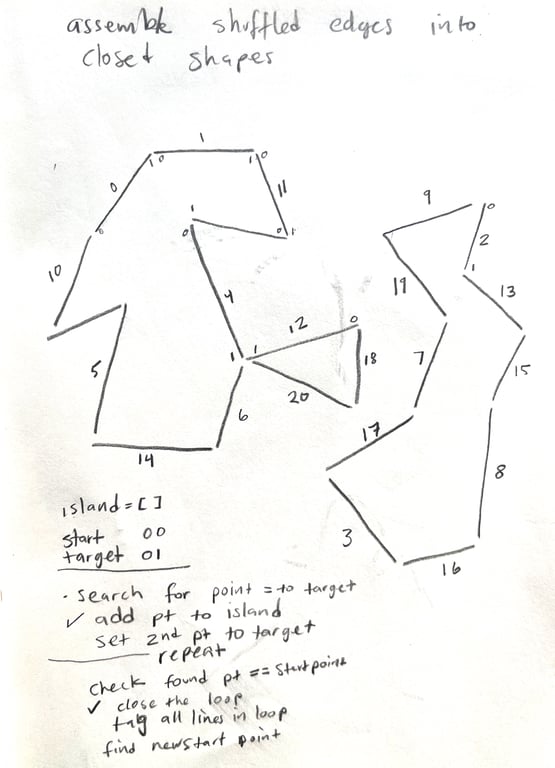 assemble shuffled edges into
closed shapes
1
1 0 1 0
0
11
9
0
1
0 0 1
2
10
19
1
13
4
12
0
1 1
18
7
15
5
20
6
17
14
8
3
16
island = [ ]
start 0 0
target 0 1
· search for point = to target
✓ add pt to island
set 2nd pt to target
repeat
check found pt == startpoint
✓ close the loop
tag all lines in loop
find newstart point